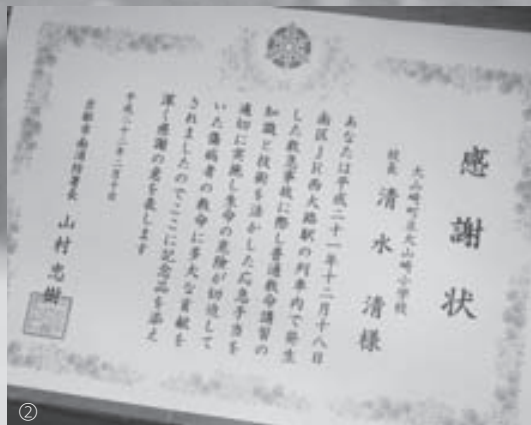 感謝状
大山崎町立大山崎小学校
校長 清水 清様
あなたは平成二十一年十二月十八日
南区JR西大路駅の列車内で発生
した救急事故に際し普通救命講習の
知識と技術を活かした応急手当を
適切に実施し生命の危険が切迫して
いた傷病者の救命に多大な貢献を
されましたのでここに記念品を添え
深く感謝の意を表します
平成二十二年二月十日
京都市南消防署長 山村忠樹
②